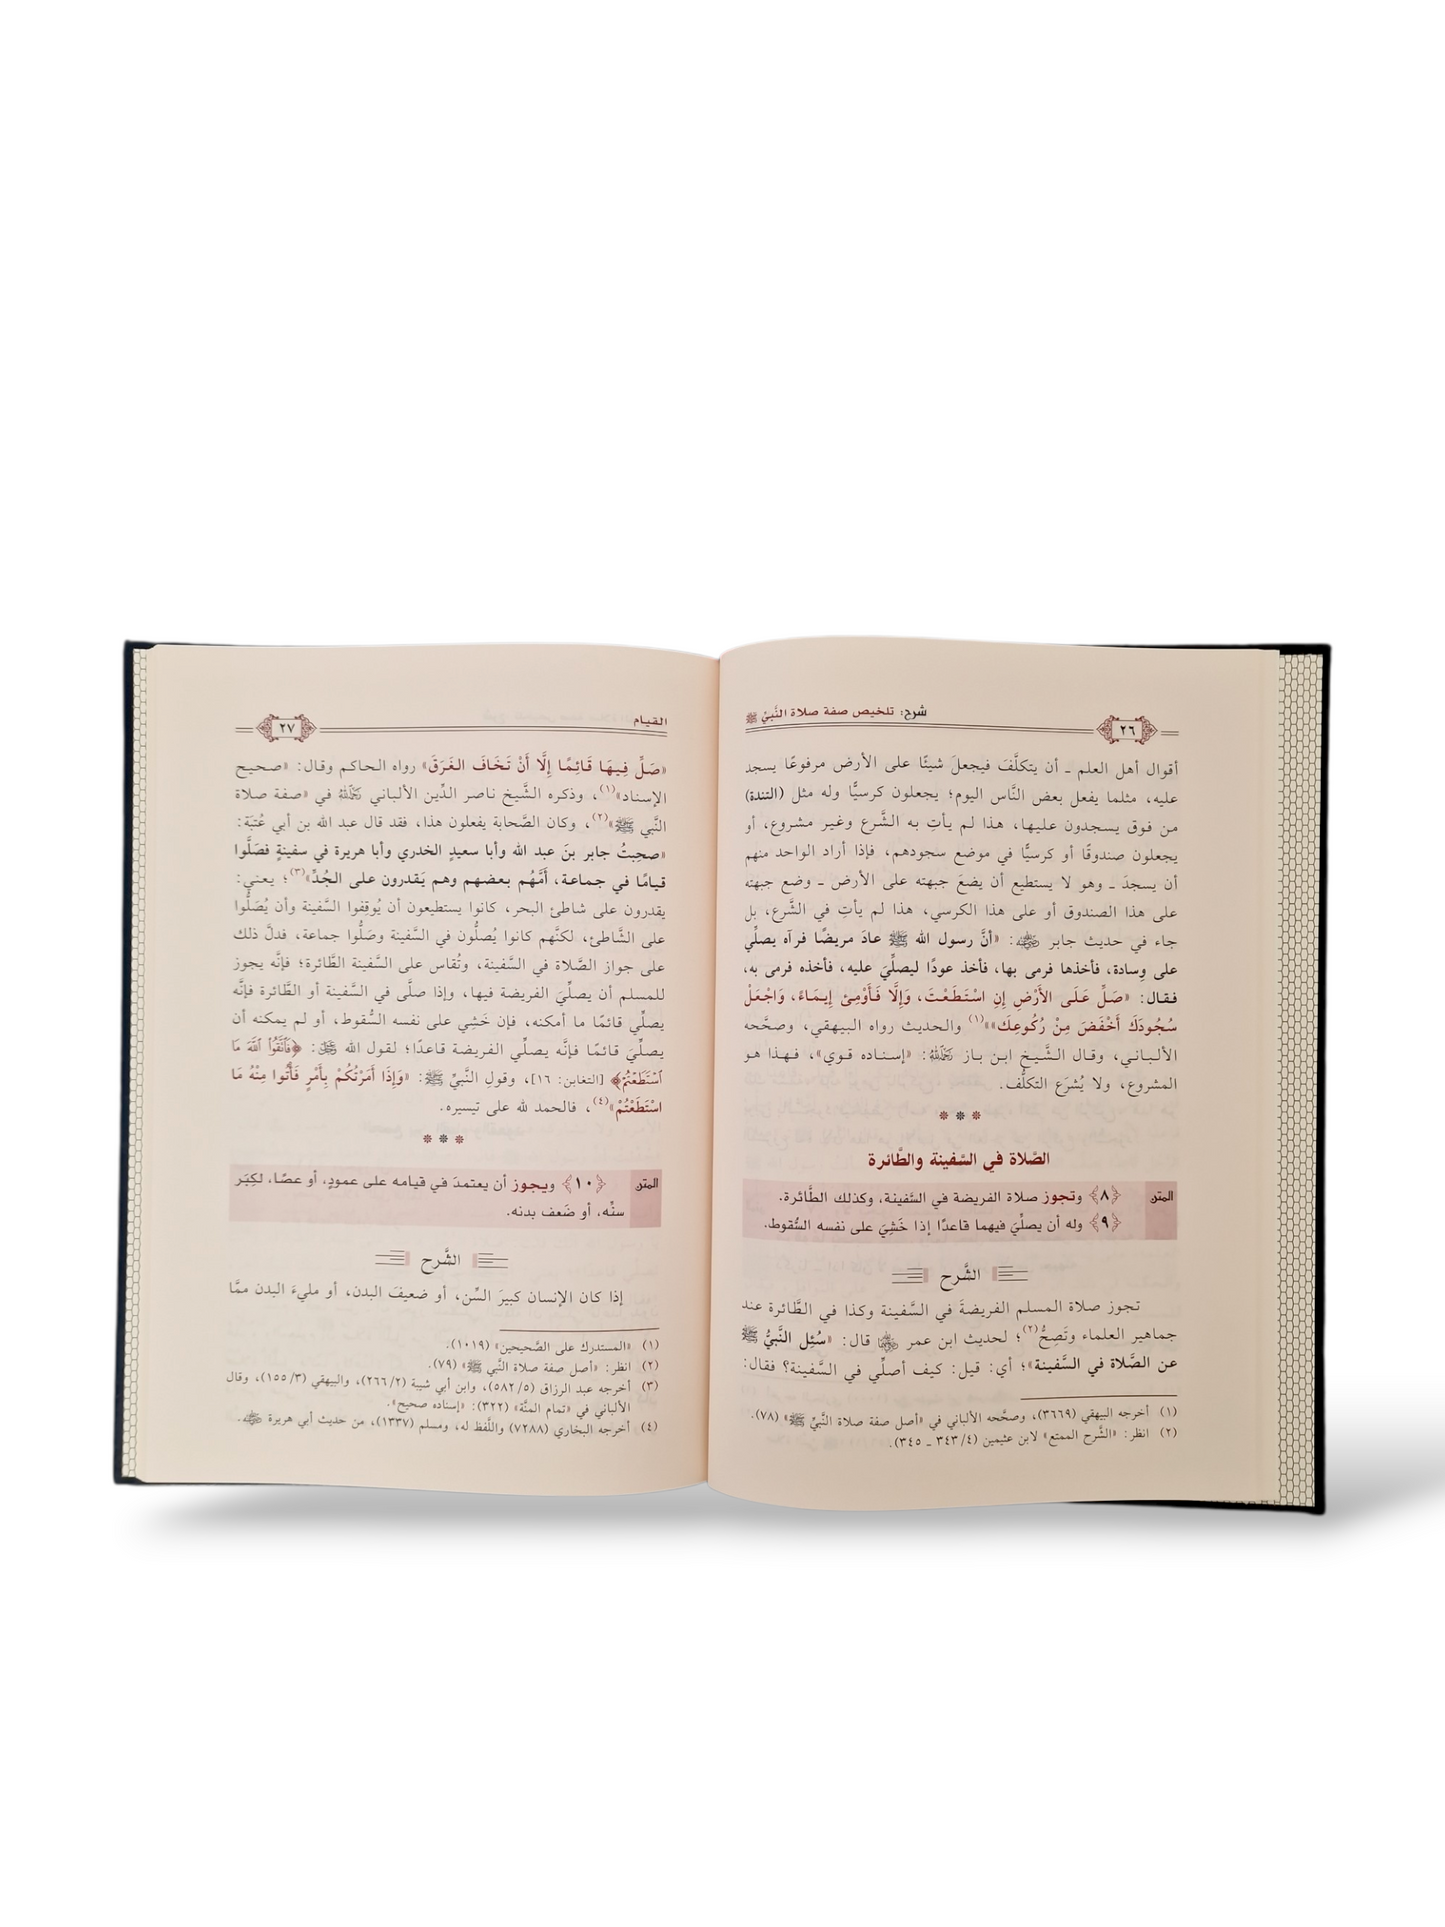 ٢٦
شرح: تلخيص صفة صلاة النَّبيّ ﷺ
أقوال أهل العلم ـ أن يتكلَّفَ فيجعلَ شيئًا على الأرض مرفوعًا يسجد
عليه، مثلما يفعل بعض النَّاس اليوم؛ يجعلون كرسيًّا وله مثل (التندة)
من فوق يسجدون عليها، هذا لم يأتِ به الشَّرع وغير مشروع، أو
يجعلون صندوقًا أو كرسيًّا في موضع سجودهم، فإذا أراد الواحد منهم
أن يسجدَ ـ وهو لا يستطيع أن يضعَ جبهته على الأرض ـ وضع جبهته
على هذا الصندوق أو على هذا الكرسي، هذا لم يأتِ في الشَّرع، بل
جاء في حديث جابر ﵁: «أنَّ رسول الله ﷺ عادَ مريضًا فرآه يصلِّي
على وِسادة، فأخذها فرمى بها، فأخذ عودًا ليصلِّيَ عليه، فأخذه فرمى به،
فقال: «صَلِّ عَلَى الأَرْضِ إِنِ اسْتَطَعْتَ، وَإِلَّا فَأَوْمِئْ إِيمَاءً، وَاجْعَلْ
سُجُودَكَ أَخْفَضَ مِنْ رُكُوعِكَ»»(١) والحديث رواه البيهقي، وصحَّحه
الألباني، وقال الشَّيخ ابن باز ﵀: «إسناده قوي»، فهذا هو
المشروع، ولا يُشرَع التكلُّف.
* * *
الصَّلاة في السَّفينة والطَّائرة
المتن ﴿٨﴾ وتجوز صلاة الفريضة في السَّفينة، وكذلك الطَّائرة.
﴿٩﴾ وله أن يصلِّيَ فيهما قاعدًا إذا خَشِيَ على نفسه السُّقوط.
الشَّرح
تجوز صلاة المسلم الفريضةَ في السَّفينة وكذا في الطَّائرة عند
جماهير العلماء وتَصِحُّ(٢)؛ لحديث ابن عمر ﵄ قال: «سُئِل النَّبيُّ ﷺ
عن الصَّلاة في السَّفينة»؛ أي: قيل: كيف أصلِّي في السَّفينة؟ فقال:
(١) أخرجه البيهقي (٣٦٦٩)، وصحَّحه الألباني في «أصل صفة صلاة النَّبيِّ ﷺ» (٧٨).
(٢) انظر: «الشَّرح الممتع» لابن عثيمين (٤/ ٣٤٣ ـ ٣٤٥).
القيام
٢٧
«صَلِّ فِيهَا قَائِمًا إِلَّا أَنْ تَخَافَ الغَرَقَ» رواه الحاكم وقال: «صحيح
الإسناد»(١)، وذكره الشَّيخ ناصر الدِّين الألباني ﵀ في «صفة صلاة
النَّبي ﷺ»(٢)، وكان الصَّحابة يفعلون هذا، فقد قال عبد الله بن أبي عُتبَة:
«صحِبتُ جابر بنَ عبد الله وأبا سعيدٍ الخدري وأبا هريرة في سفينةٍ فصَلَّوا
قيامًا في جماعة، أَمَّهُم بعضهم وهم يَقدرون على الجُدِّ»(٣)؛ يعني:
يقدرون على شاطئ البحر، كانوا يستطيعون أن يُوقِفوا السَّفينة وأن يُصَلُّوا
على الشَّاطئ، لكنَّهم كانوا يُصلُّون في السَّفينة وصَلُّوا جماعة، فدلَّ ذلك
على جواز الصَّلاة في السَّفينة، وتُقاس على السَّفينة الطَّائرة؛ فإنَّه يجوز
للمسلم أن يصلِّيَ الفريضة فيها، وإذا صلَّى في السَّفينة أو الطَّائرة فإنَّه
يصلِّي قائمًا ما أمكنه، فإن خَشِي على نفسه السُّقوط، أو لم يمكنه أن
يصلِّيَ قائمًا فإنَّه يصلِّي الفريضة قاعدًا؛ لقول الله ﷿: ﴿فَٱتَّقُوا۟ ٱللَّهَ مَا
ٱسْتَطَعْتُمْ﴾ [التغابن: ١٦]، وقولِ النَّبيِّ ﷺ: «وَإِذَا أَمَرْتُكُمْ بِأَمْرٍ فَأْتُوا مِنْهُ مَا
اسْتَطَعْتُمْ»(٤)، فالحمد لله على تيسيره.
* * *
المتن ﴿١٠﴾ ويجوز أن يعتمدَ في قيامه على عمودٍ، أو عصًا، لكِبَر
سنِّه، أو ضَعف بدنه.
الشَّرح
إذا كان الإنسان كبيرَ السِّن، أو ضعيفَ البدن، أو مليءَ البدن ممَّا
(١) «المستدرك على الصَّحيحين» (١٠١٩).
(٢) انظر: «أصل صفة صلاة النَّبي ﷺ» (٧٩).
(٣) أخرجه عبد الرزاق (٥/ ٥٨٢)، وابن أبي شيبة (٢/ ٢٦٦)، والبيهقي (٣/ ١٥٥)، وقال
الألباني في «تمام المنَّة» (٣٢٢): «إسناده صحيح».
(٤) أخرجه البخاري (٧٢٨٨) واللَّفظ له، ومسلم (١٣٣٧)، من حديث أبي هريرة ﵁.